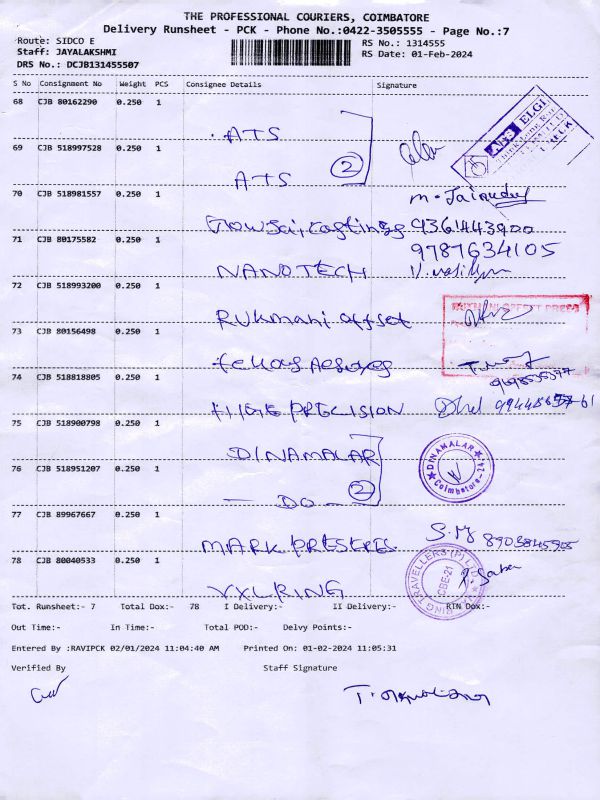 THE PROFESSIONAL COURIERS, COIMBATORE
Delivery Runsheet - PCK - Phone No.:0422-3505555 - Page No.:7
Route: SIDCO E
RS No.: 1314555
Staff: JAYALAKSHMI
RS Date: 01-Feb-2024
DRS No.: DCJB131455507
S No Consignment No Weight PCS Consignee Details Signature
68 CJB 80162290 0.250 1
ATS
69 CJB 518997528 0.250 1
ATS
2
ELGI
70 CJB 518981557 0.250 1
9361443900
71 CJB 80175582 0.250 1
9787634105
NANOTECH
72 CJB 518993200 0.250 1
Rukmani offset
73 CJB 80156498 0.250 1
74 CJB 518818805 0.250 1
PRECISION
75 CJB 518900798 0.250 1
DINAMALAR
DINAMALAR
Coimbatore-24
76 CJB 518951207 0.250 1
DO
2
77 CJB 89967667 0.250 1
MARK
78 CJB 80040533 0.250 1
RING TRAVELLERS (P) LTD
CBE-21
Tot. Runsheet:- 7 Total Dox:- 78 I Delivery:- II Delivery:- RTN Dox:-
Out Time:- In Time:- Total POD:- Delvy Points:-
Entered By :RAVIPCK 02/01/2024 11:04:40 AM Printed On: 01-02-2024 11:05:31
Verified By Staff Signature